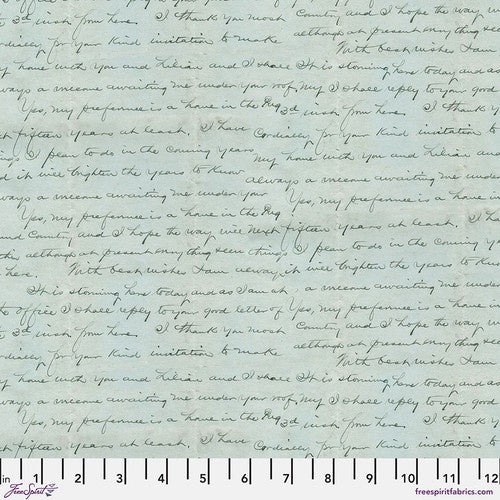 y 3d inst from here. I thank you most County, and I hope the way w
Cordially, for your kind invitation to make although at present everything see
With best wishes I am
my home with you and Lilian and I shall It is storming here today and as
always a welcome awaiting me under your roof, my I shall reply to your good
Yes, my preference is a home in the 3d inst from here. I thank y
next fifteen years at least. I have Cordially, for your kind invitation to
things I plan to do in the coming years my home with you and Lilian and
d it will brighten the years to know always a welcome awaiting me unde
always a welcome awaiting me under your Yes, my preference is a home in
Yes, my preference is a home in the next fifteen years at least. I
and County, and I hope the way will things I plan to do in the coming y
although at present everything seem it will brighten the years to kno
here. With best wishes I am always a welcome awaiting me under
It is storming here today and as I am at Yes, my preference is a home in
the office I shall reply to your good letter of County, and I hope the way w
3d inst from here. I thank you most although at present everything see
Cordially, for your kind invitation to make With best wishes I am
my home with you and Lilian and I shall It is storming here today and as
always a welcome awaiting me under your roof, my I shall reply to your good
Yes, my preference is a home in the 3d inst from here. I thank y
next fifteen years at least. I have Cordially, for your kind invitation to
in 1 2 3 4 5 6 7 8 9 10 11 12
FreeSpirit freespiritfabrics.com